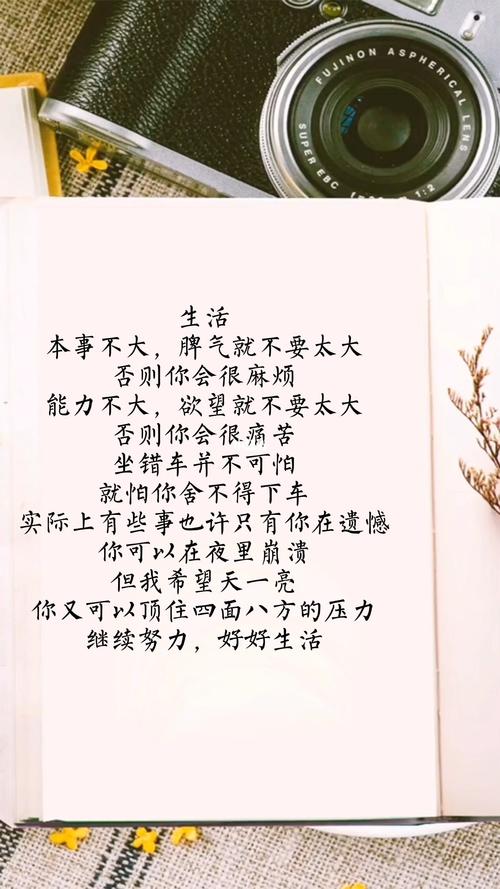 FUJINON ASPHERICAL LENS
SUPER EBC
1:2
生活
本事不大，脾气就不要太大
否则你会很麻烦
能力不大，欲望就不要太大
否则你会很痛苦
坐错车并不可怕
就怕你舍不得下车
实际上有些事也许只有你在遗憾
你可以在夜里崩溃
但我希望天一亮
你又可以顶住四面八方的压力
继续努力，好好生活